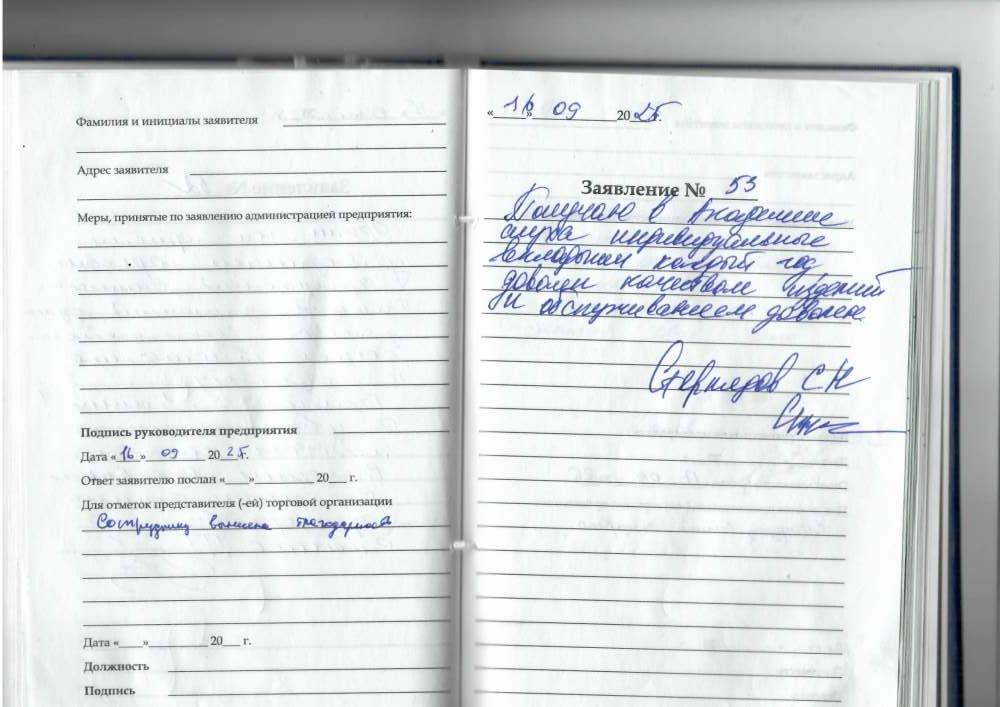 Фамилия и инициалы заявителя
Адрес заявителя
Меры, принятые по заявлению администрацией предприятия:
Подпись руководителя предприятия
Дата «16» 09 2025г.
Ответ заявителю послан «___» 20___ г.
Для отметок представителя (-ей) торговой организации
Сотруднику вынесена благодарность
Дата «___» 20___ г.
Должность
Подпись
«16» 09 2025г.
Заявление № 53
Получаю в Академии
слуха индивидуальные
вкладыши каждый год
доволен качеством изделий
и обслуживанием доволен.
С Н